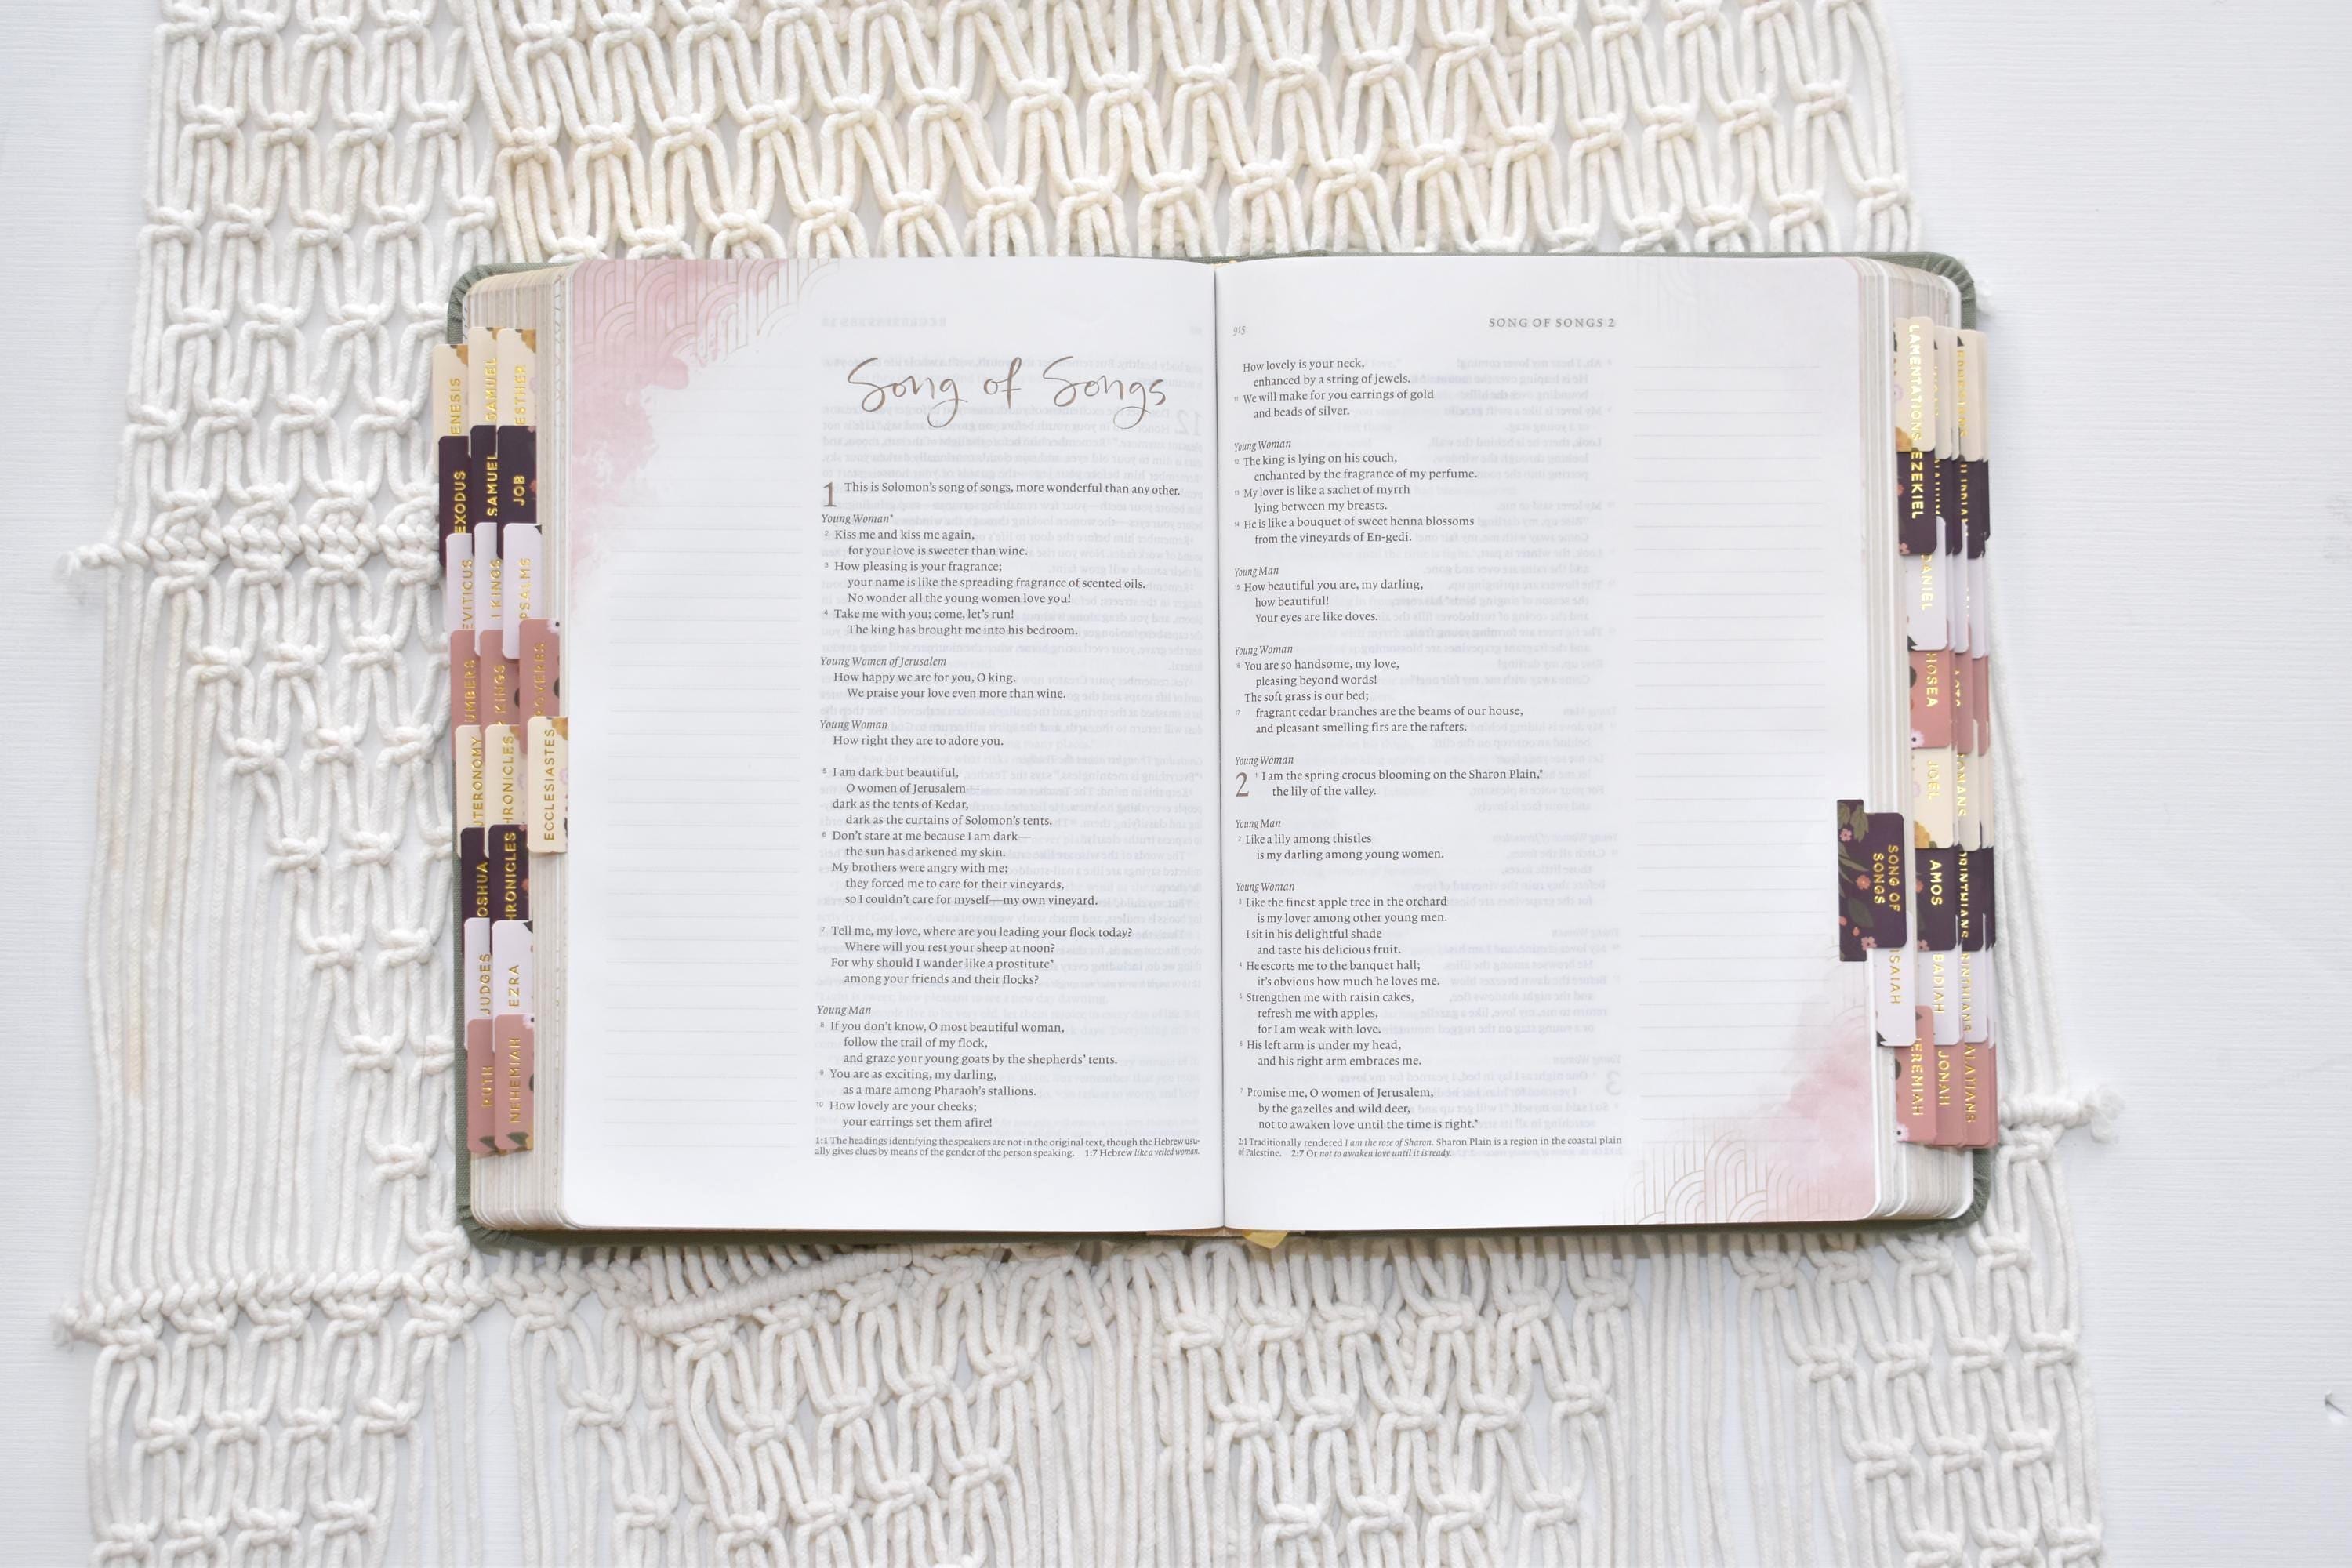 Song of Songs
1 This is Solomon's song of songs, more wonderful than any other.
Young Woman*
2 Kiss me and kiss me again,
for your love is sweeter than wine.
3 How pleasing is your fragrance;
your name is like the spreading fragrance of scented oils.
No wonder all the young women love you!
4 Take me with you; come, let's run!
The king has brought me into his bedroom.
Young Women of Jerusalem
How happy we are for you, O king.
We praise your love even more than wine.
Young Woman
How right they are to adore you.
5 I am dark but beautiful,
O women of Jerusalem—
dark as the tents of Kedar,
dark as the curtains of Solomon's tents.
6 Don't stare at me because I am dark—
the sun has darkened my skin.
My brothers were angry with me;
they forced me to care for their vineyards,
so I couldn't care for myself—my own vineyard.
7 Tell me, my love, where are you leading your flock today?
Where will you rest your sheep at noon?
For why should I wander like a prostitute*
among your friends and their flocks?
Young Man
8 If you don't know, O most beautiful woman,
follow the trail of my flock,
and graze your young goats by the shepherds' tents.
9 You are as exciting, my darling,
as a mare among Pharaoh's stallions.
10 How lovely are your cheeks;
your earrings set them afire!
1:1 The headings identifying the speakers are not in the original text, though the Hebrew usu-
ally gives clues by means of the gender of the person speaking. 1:7 Hebrew like a veiled woman.
915
SONG OF SONGS 2
How lovely is your neck,
enhanced by a string of jewels.
11 We will make for you earrings of gold
and beads of silver.
Young Woman
12 The king is lying on his couch,
enchanted by the fragrance of my perfume.
13 My lover is like a sachet of myrrh
lying between my breasts.
14 He is like a bouquet of sweet henna blossoms
from the vineyards of En-gedi.
Young Man
15 How beautiful you are, my darling,
how beautiful!
Your eyes are like doves.
Young Woman
16 You are so handsome, my love,
pleasing beyond words!
The soft grass is our bed;
17 fragrant cedar branches are the beams of our house,
and pleasant smelling firs are the rafters.
Young Woman
2 1 I am the spring crocus blooming on the Sharon Plain,*
the lily of the valley.
Young Man
2 Like a lily among thistles
is my darling among young women.
Young Woman
3 Like the finest apple tree in the orchard
is my lover among other young men.
I sit in his delightful shade
and taste his delicious fruit.
4 He escorts me to the banquet hall;
it's obvious how much he loves me.
5 Strengthen me with raisin cakes,
refresh me with apples,
for I am weak with love.
6 His left arm is under my head,
and his right arm embraces me.
7 Promise me, O women of Jerusalem,
by the gazelles and wild deer,
not to awaken love until the time is right.*
2:1 Traditionally rendered I am the rose of Sharon. Sharon Plain is a region in the coastal plain
of Palestine. 2:7 Or not to awaken love until it is ready.
ENESIS
EXODUS
EVITICUS
UMBERS
UTERONOMY
OSHUA
JUDGES
RUTH
SAMUEL
SAMUEL
KINGS
KINGS
HRONICLES
HRONICLES
EZRA
NEHEMIAH
ESTHER
JOB
PSALMS
PROVERBS
ECCLESIASTES
SONG OF
SONGS
SAIAH
JEREMIAH
LAMENTATIONS
EZEKIEL
DANIEL
HOSEA
JOEL
AMOS
BADIAH
JONAH